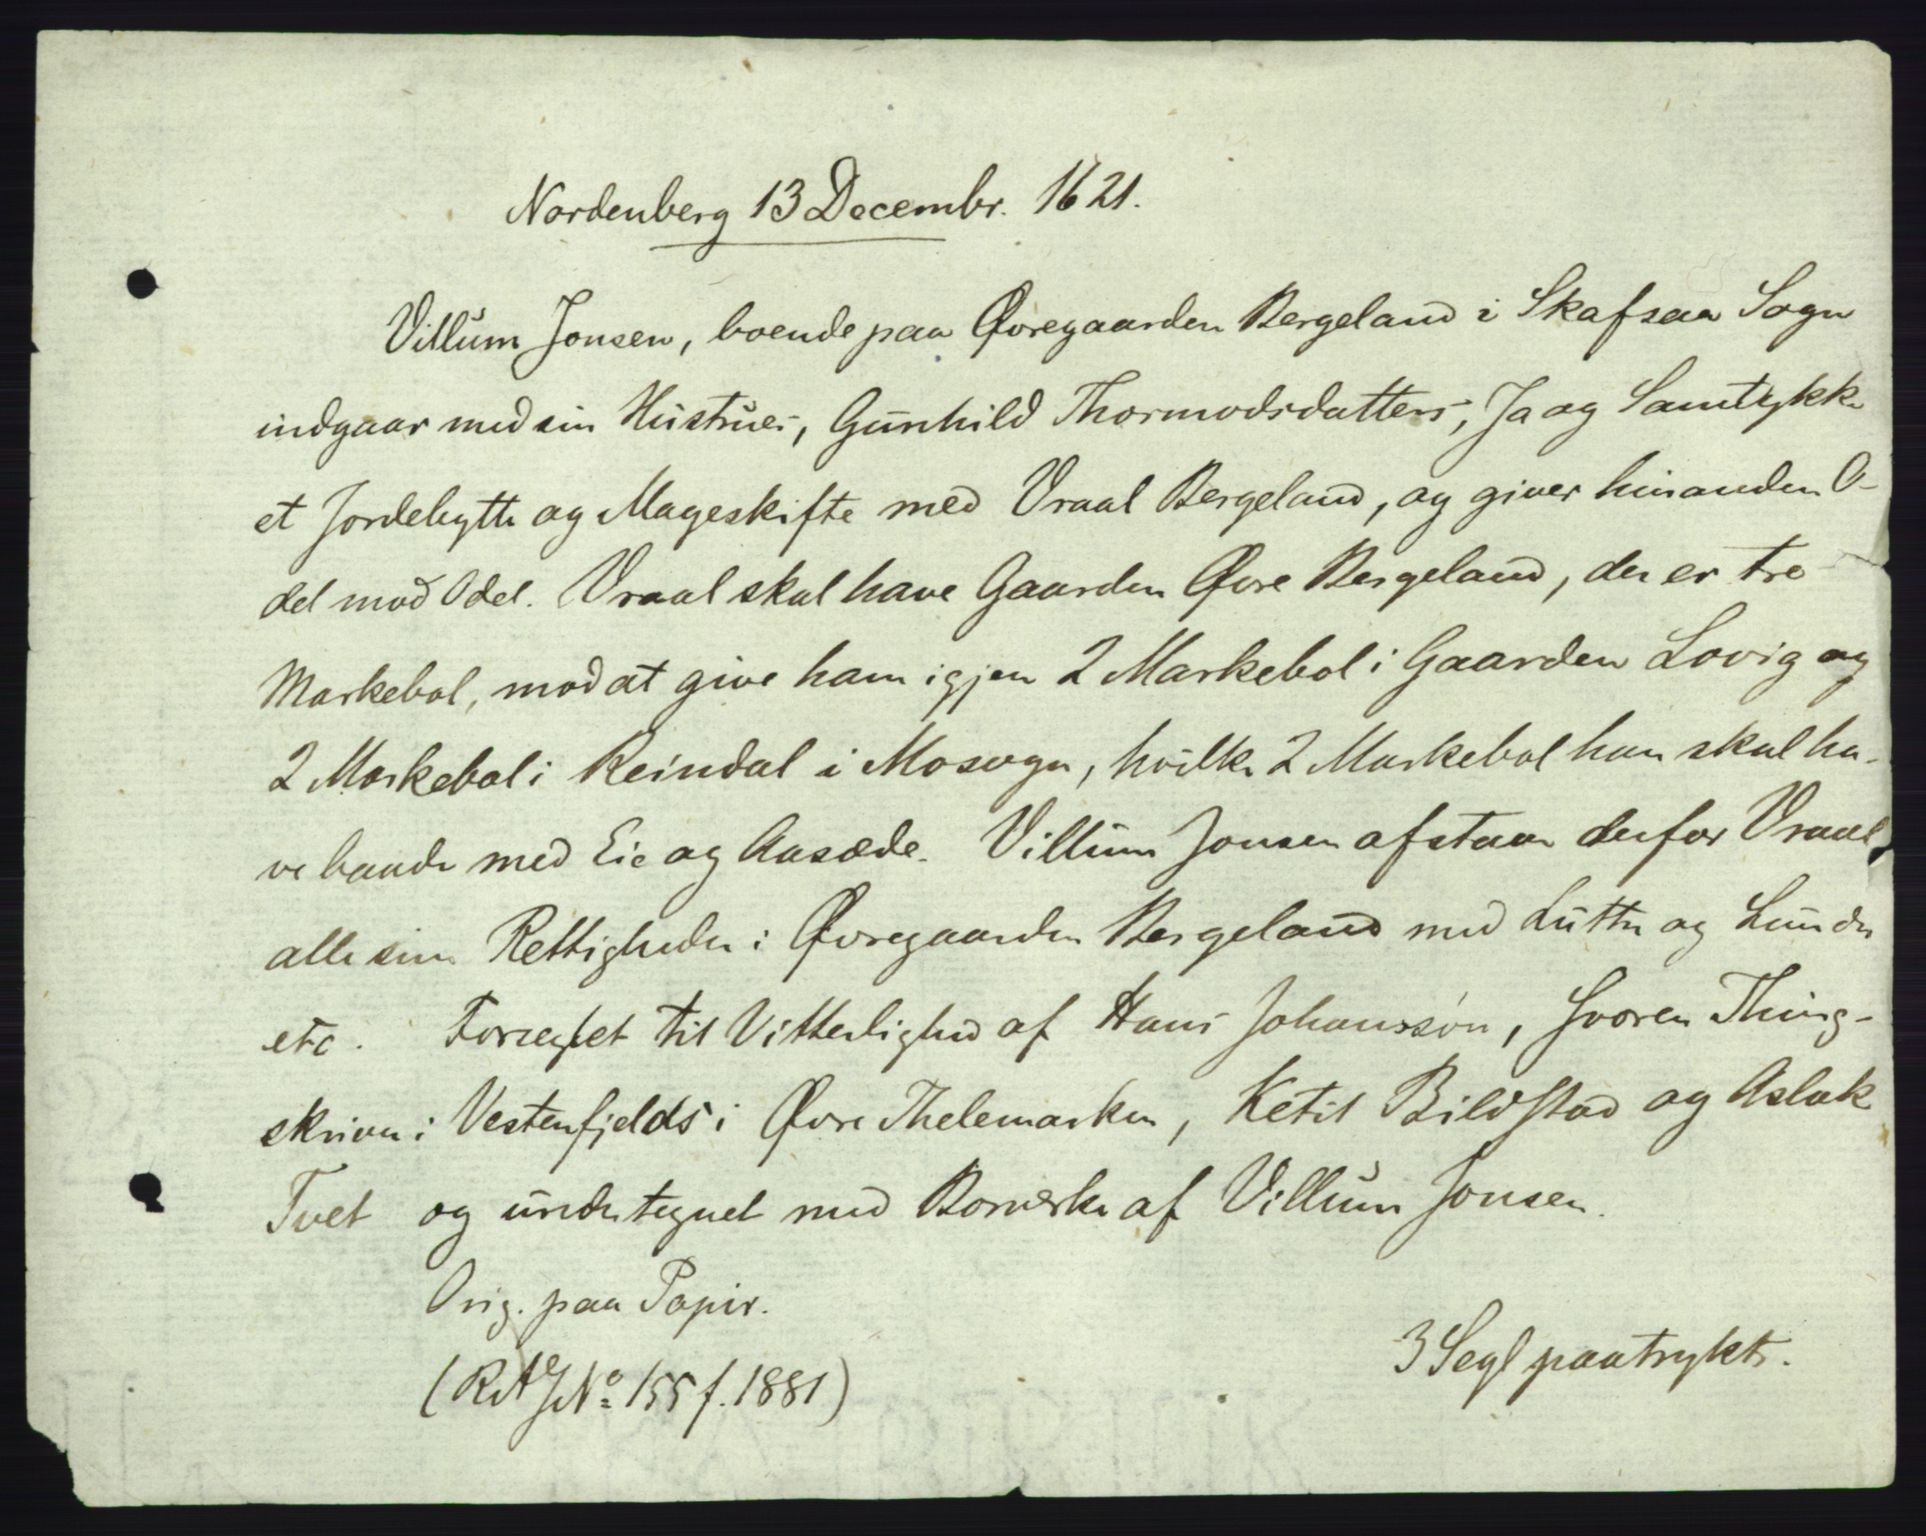 Nordenberg 13 Decembr. 1621.
Villum Jonsen, boende paa Øvregaarden Bergeland i Skafsaa Sogn
indgaar med sin Hustrues, Gunhild Thormodsdatters, Ja og Samtykke
et Jordebytte og Mageskifte med Vraal Bergeland, og giver hinanden O-
del mod Odel. Vraal skal have Gaarden Øvre Bergeland, der er tre
Markebol, mod at give ham igjen 2 Markebol i Gaarden Lovig og
2 Markebol i Reindal i Mosogn, hvilke 2 Markebol han skal ha-
ve baade med Eie og Aasæde. Villum Jonsen afstaar derfor Vraal
alle sine Rettigheder i Øvregaarden Bergeland med Lutter og Lunder
etc. Forseglet til Vitterlighed af Hans Johanssøn, svoren Thing-
skriver i Vestenfjelds i Øvre Thelemarken, Ketil Bildstad og Aslak
Tvet og undertegnet med Bomerke af Villum Jonsen.
Orig. paa Papir.
(RA J No 155 f. 1881)
3 Segl paatrykte.